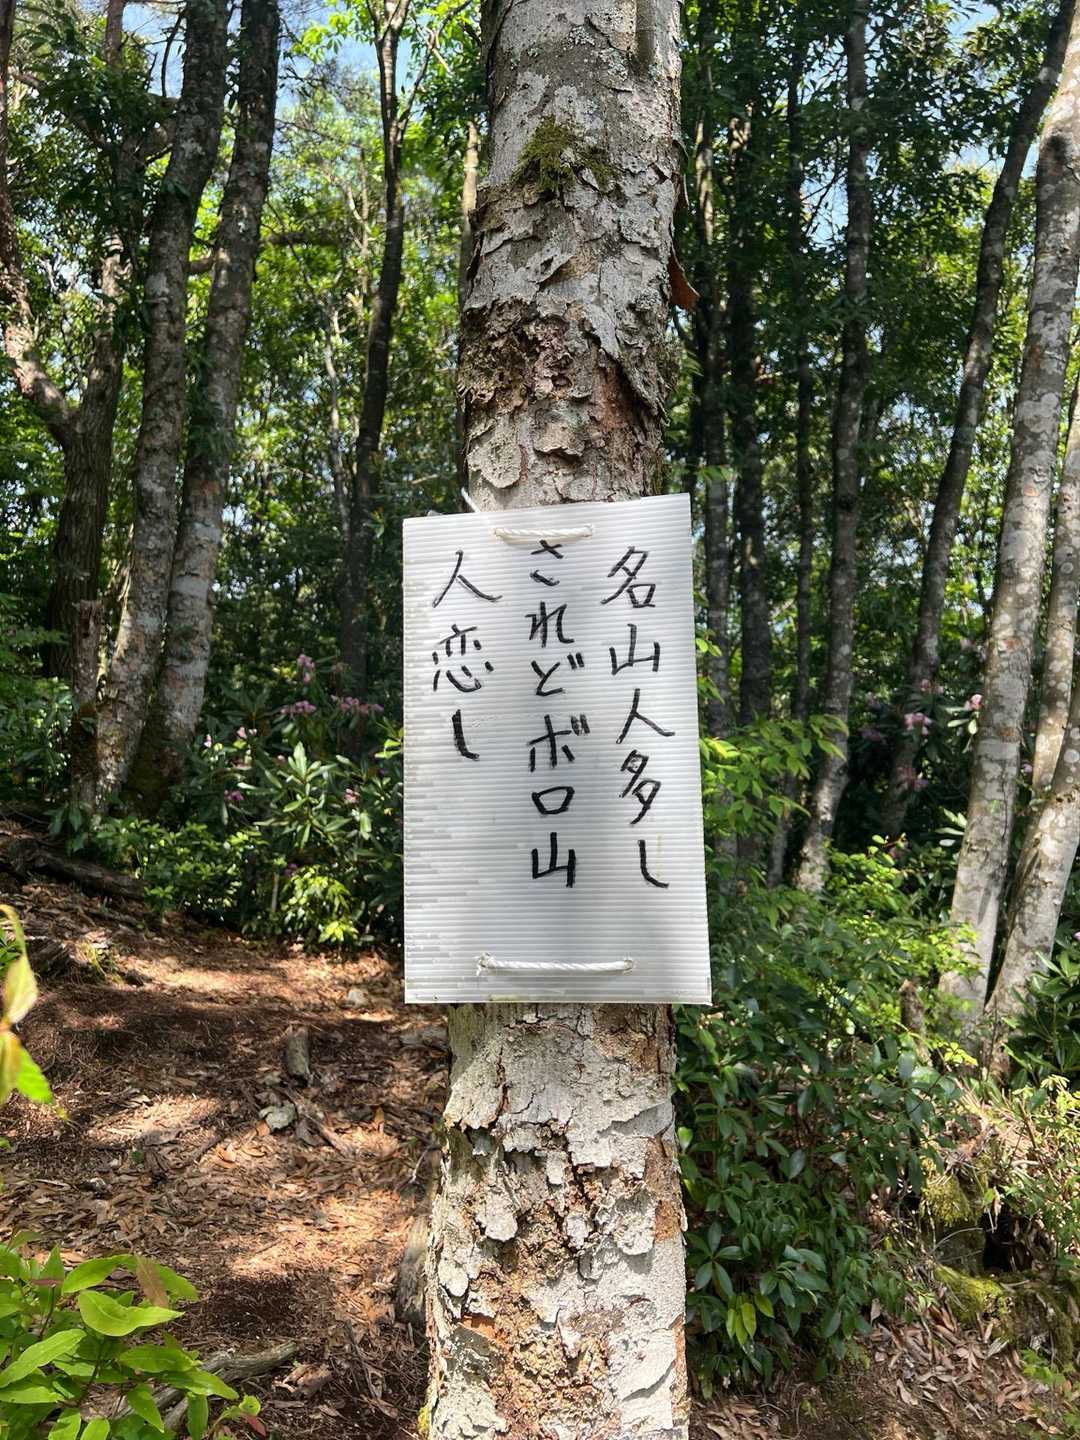 名山人多し
されどボロ山
人恋し